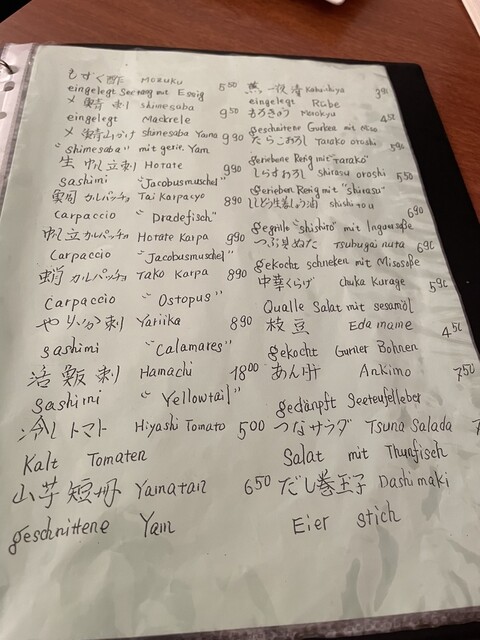 もずく酢 Mozuku 5.50
eingelegt Seetang mit Essig
〆鯖刺 shimesaba 9.50
eingelegt Mackrele
〆鯖山かけ shimesaba Yama 9.90
"shimesaba" mit gerie. Yam
生帆立刺 Hotate 9.90
sashimi "Jacobusmuschel"
カルパッチョ Tai Karpacyo 8.90
carpaccio "Dradefisch"
帆立カルパッチョ Hotate Karpa 9.90
Carpaccio "Jacobusmuschel"
蛸カルパッチョ Tako Karpa 8.90
Carpaccio "Ostopus"
やりいか刺 Yariika 8.90
sashimi "Calamares"
活 刺 Hamachi 18.00
sashimi "Yellowtail"
冷しトマト Hiyashi Tomato 5.00
Kalt Tomaten
山芋短冊 Yamatan 6.50
geschnittene Yam
一夜漬 3.9
eingelegt Rübe
もろきゅう Morokyu 4.5
geschnitene Gurken mit Miso
たらこおろし Tarako oroshi 5.9
geriebene Retig mit "Tarako"
しらすおろし Shirasu oroshi 5.50
gerieben Retig mit "shirasu"
ししとう生姜しょう油 shishitou 6.90
gegrillo "shishito" mit Ingwasoße
つぶ貝ぬた Tsubugai nuta 6.90
gekocht schneken mit Misosoße
中華くらげ Chuka Kurage 5.90
Qualle Salat mit sesamöl
枝豆 Edamame 4.50
gekocht Gurner Bohnen
あん肝 Ankimo 7.50
gedänpft Seeteufelleber
つなサラダ Tsuna Salada 7
Salat mit Thunfisch
だし巻玉子 Dashimaki
Eier stich